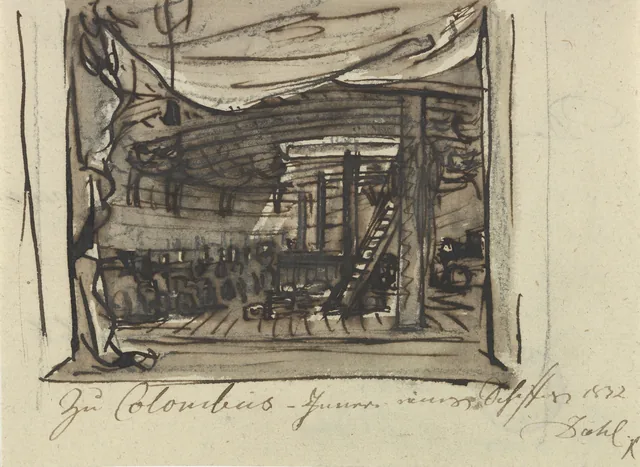 Zu Colombus - Inneres eines Schiffes 1832
Dahl